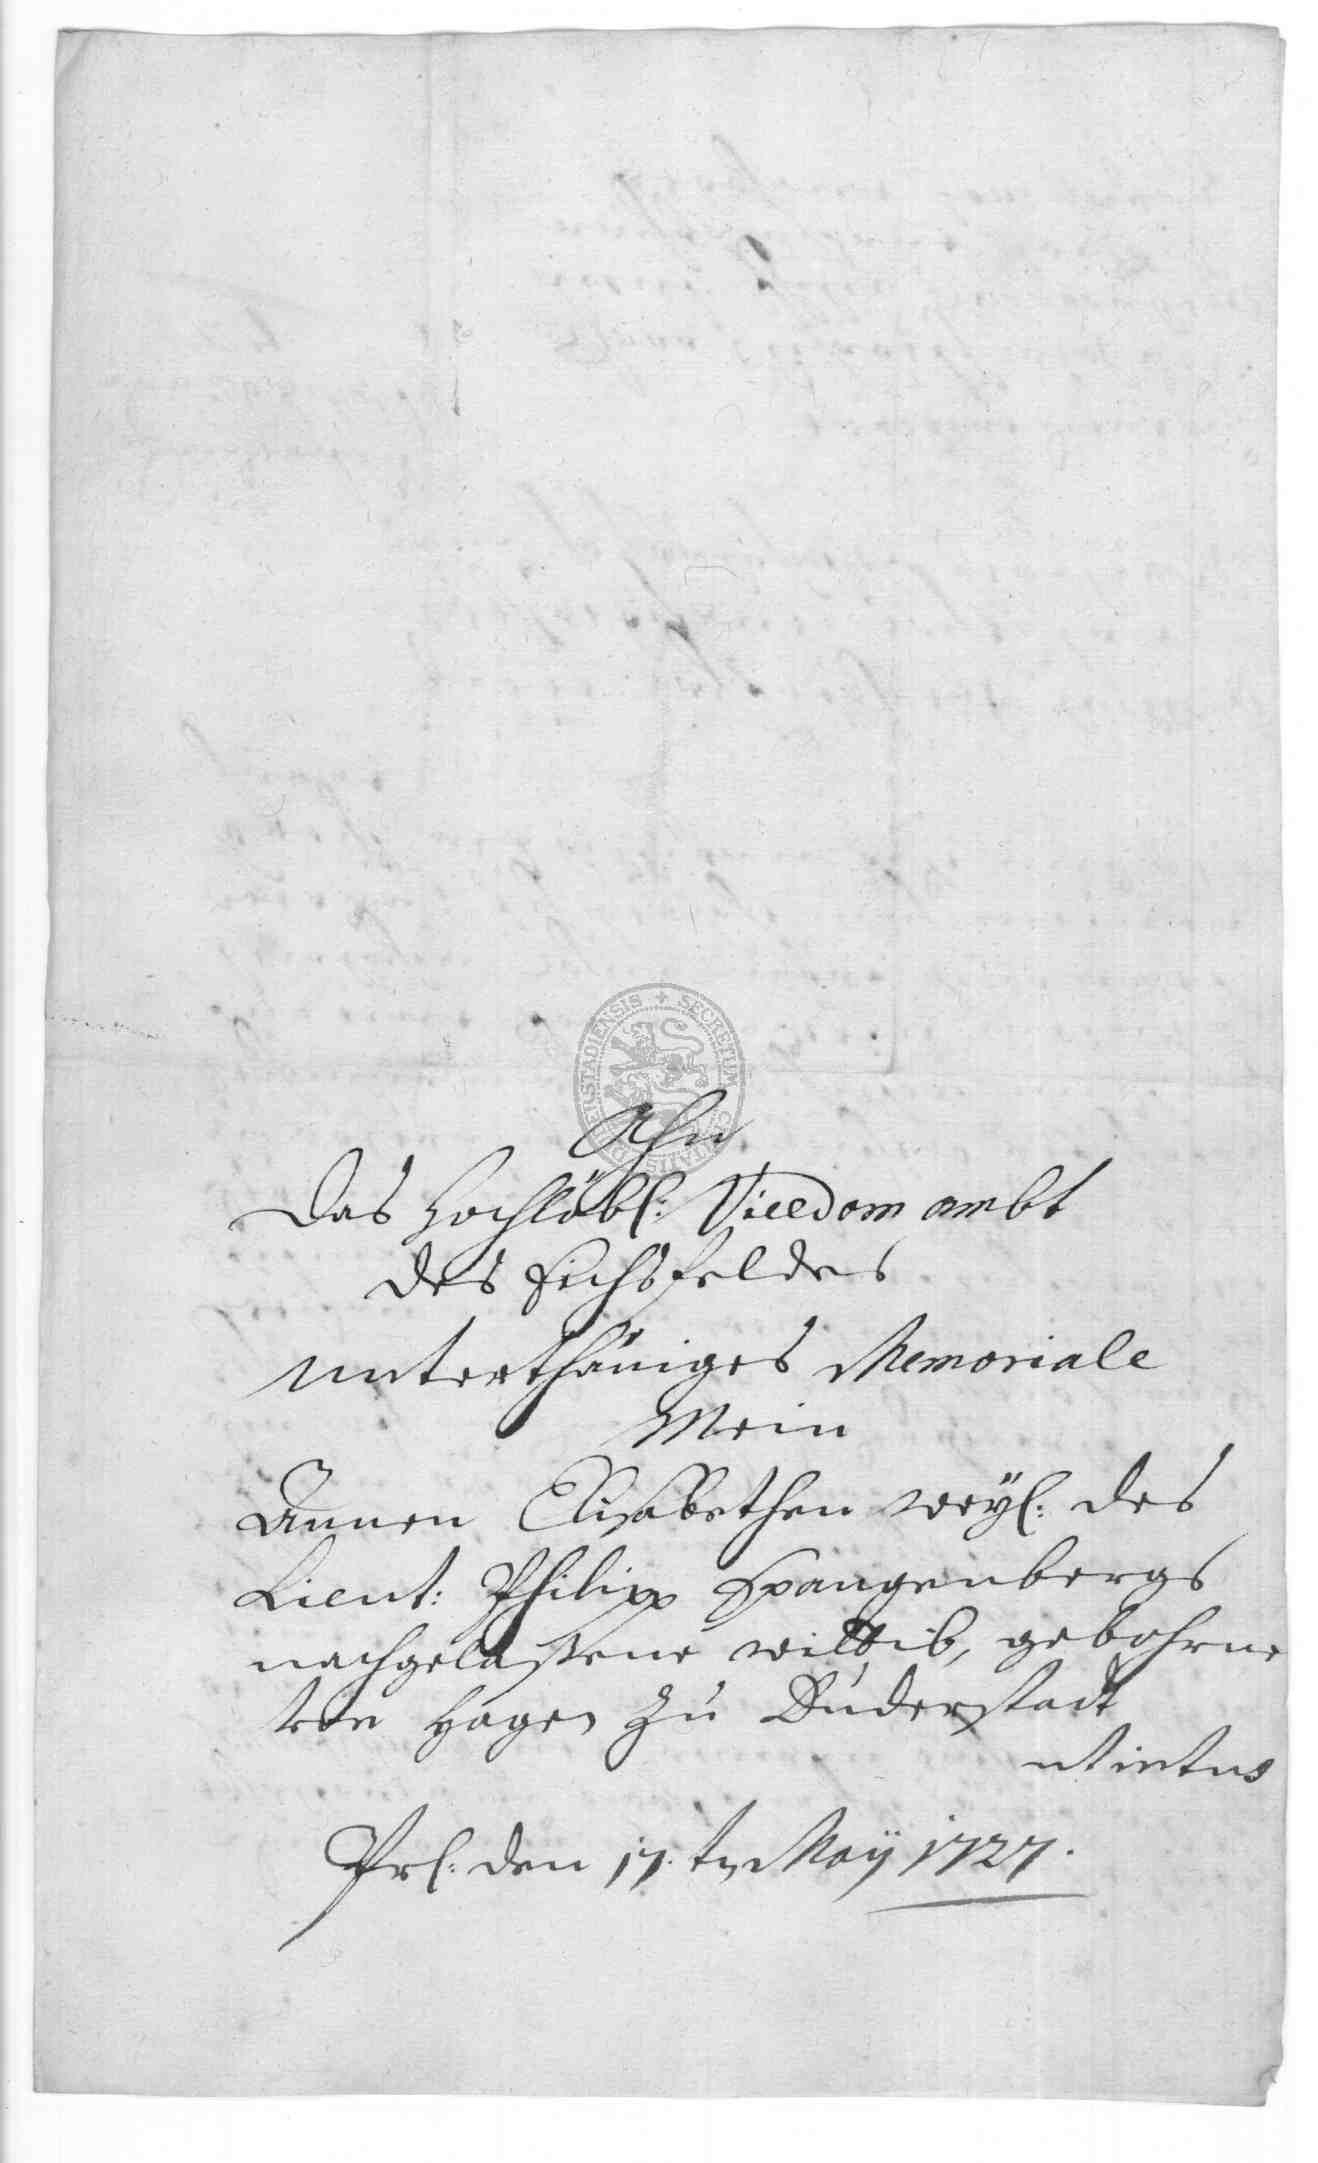 SECRETUM CIVITATIS DUDERSTADIENSIS
Ahn
das Hochlöbl: Vicedom ambt
des Eichsfeldes
unterthäniges Memoriale
Mein
Annen Elisabethen weÿl: des
Lieut: Philipp Spangenbergs
nachgelaßene wittib, gebohrne
von Hagen zu Duderstadt
Prs: den 17. tn Maÿ 1727.